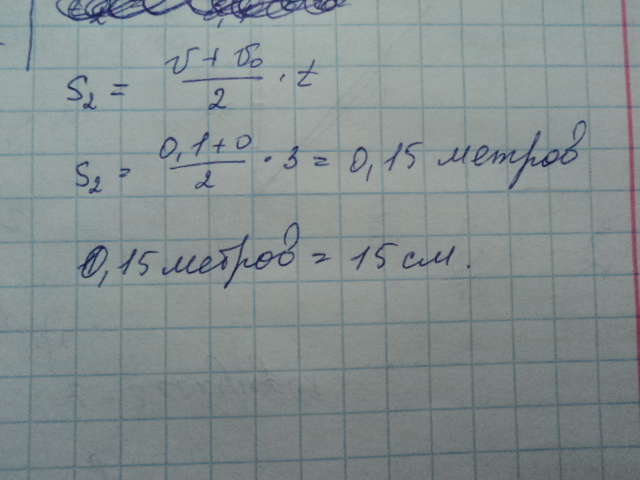 S₂ = (v + v₀)/2 · t
S₂ = (0,1 + 0)/2 · 3 = 0,15 метров
0,15 метров = 15 см.